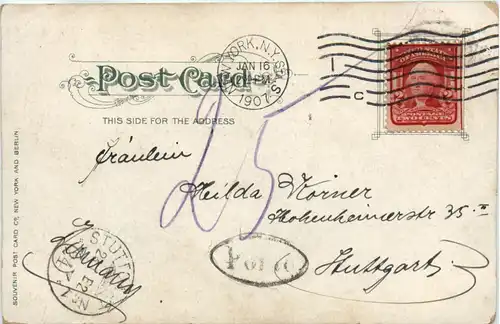 NEW YORK, N.Y.
JAN 16
1907
1
C
POST CARD
THIS SIDE FOR THE ADDRESS
UNITED STATES
OF AMERICA
2 2
POSTAGE
TWO CENTS
25
Fräulein
Hilda Körner
Hohenheimerstr 35 II
Stuttgart
Porto
STUTT
Nr. 1
SOUVENIR POST CARD CO. NEW YORK AND BERLIN